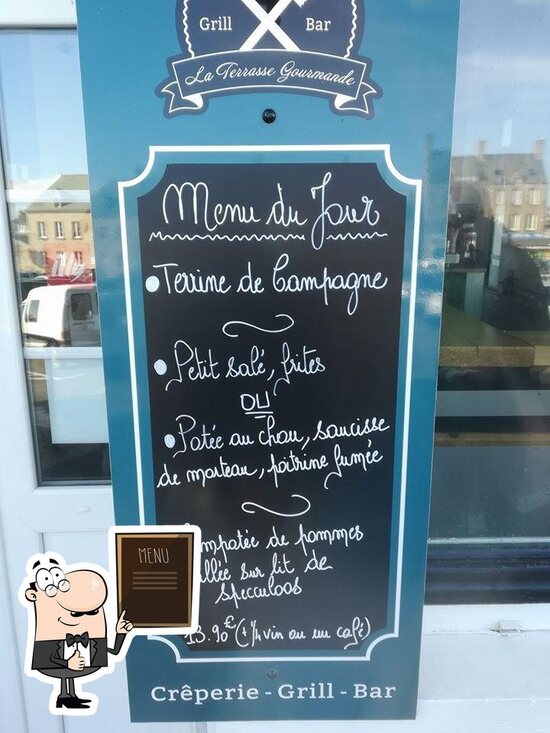 Grill Bar
La Terrasse Gourmande
Menu du Jour
Terrine de Campagne
Petit salé, frites
OU
Potée au chou, saucisse
de morteau, poitrine fumée
de pommes
sur lit de
specculoos
13.90€ (+¼ vin ou un café)
MENU
Crêperie - Grill - Bar